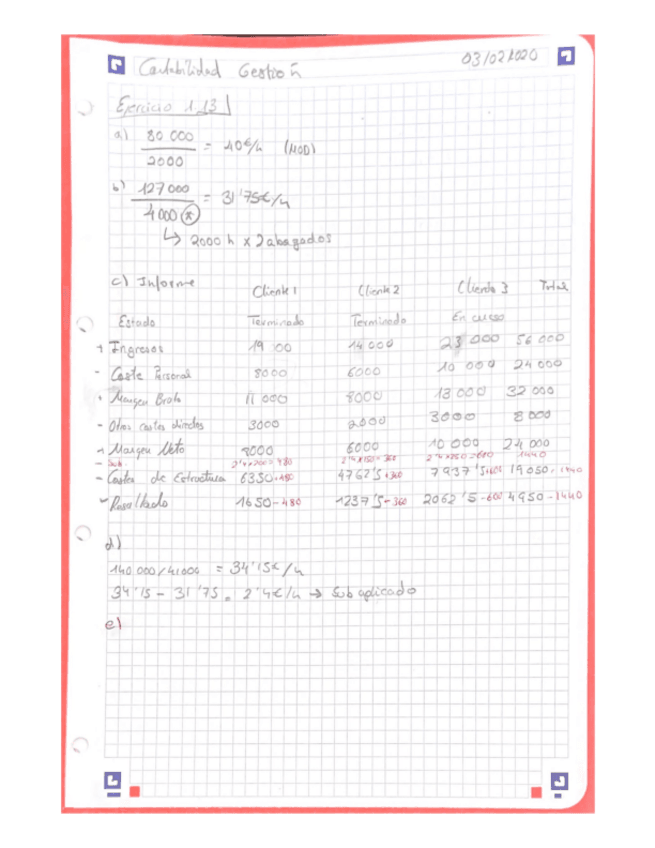 03/02/2020
Contabilidad Gestión
Ejercicio 1.13
a) 80 000 / 2000 = 40€/h (MOD)
b) 127 000 / 4000 (*) = 31'75€/h
↳ 2000 h x 2 abogados
c) Informe Cliente 1 Cliente 2 Cliente 3 Total
Estado Terminado Terminado En curso
+ Ingresos 19 00 14 000 23 000 56 000
- Coste Personal 8000 6000 10 000 24 000
Margen Bruto 11 000 8000 13 000 32 000
- Otros costes directos 3000 2000 3000 8 000
Margen Neto 8000 6000 10 000 24 000
- Sub 2'4x200=480 2'4x150=360 2'4x250=600 1440
- Costes de Estructura 6350+480 4762'5+360 7937'5+600 19050+1440
Resultado 1650-480 1237'5-360 2062'5-600 4950-1440
d)
140 000/4100 = 34'15€/h
34'15 - 31'75 = 2'4€/h → Subaplicado
e)